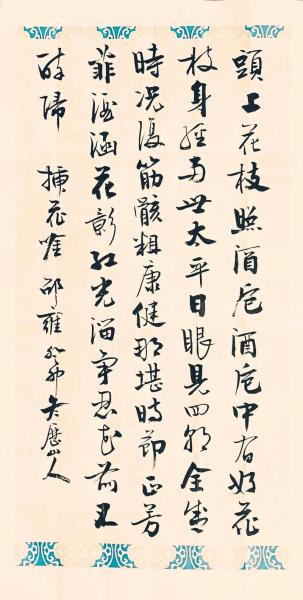 頭上花枝照酒卮酒卮中有好花
枝身經兩世太平日眼見四朝全盛
時況復筋骸粗康健那堪時節正芳
菲酒涵花影紅光溜爭忍花前不
醉歸 插花吟 邵雍 癸卯冬歷山人